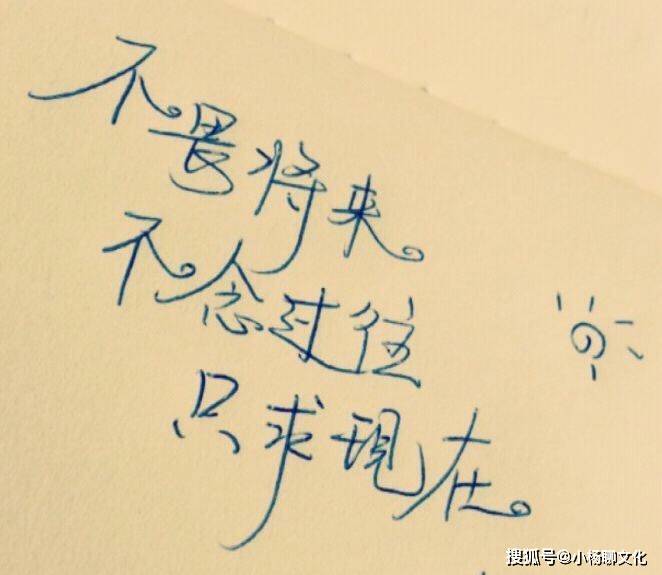 不畏将来
不念过往
只求現在
搜狐号@小杨聊文化